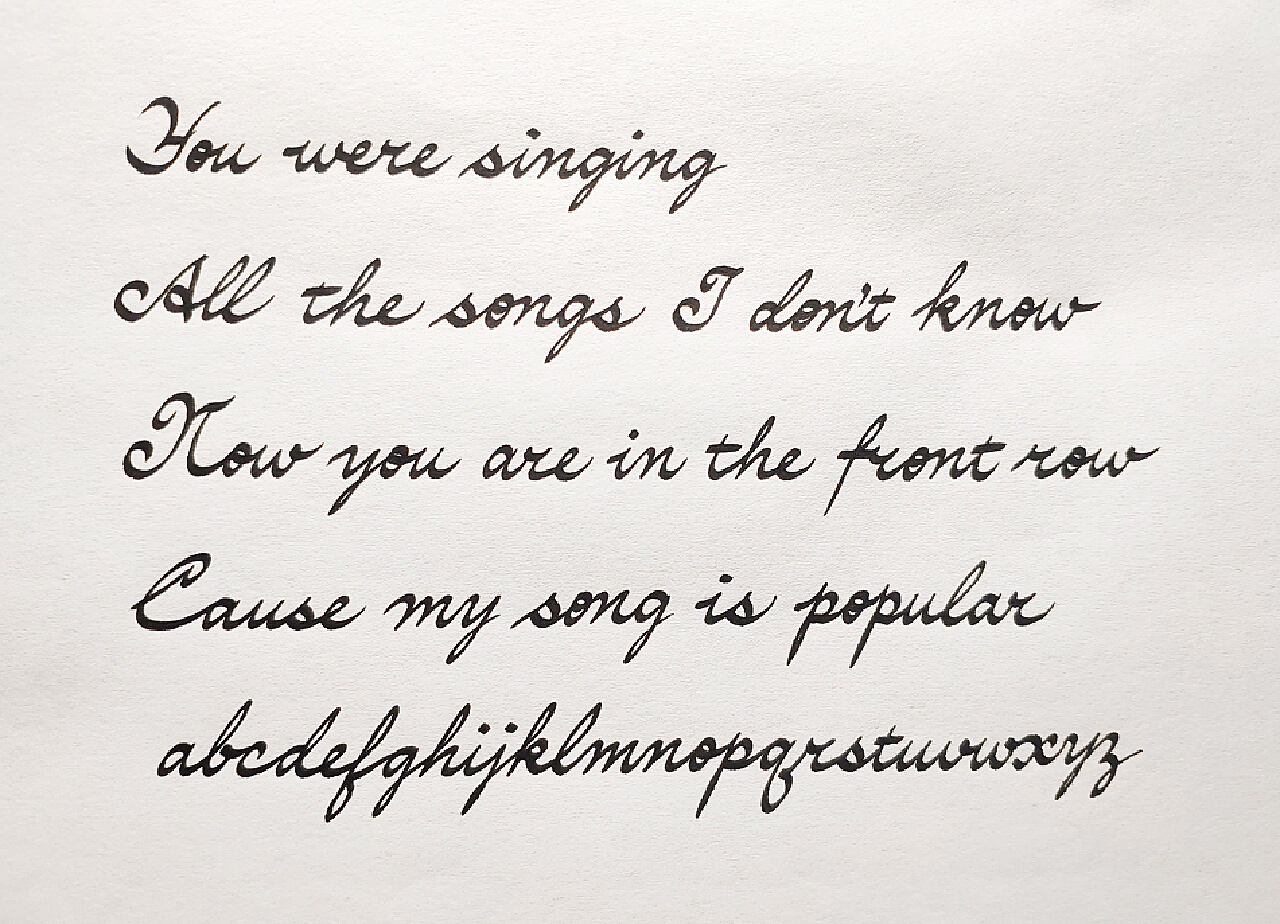 You were singing
All the songs I don't know
Now you are in the front row
Cause my song is popular
abcdefghijklmnopqrstuvwxyz